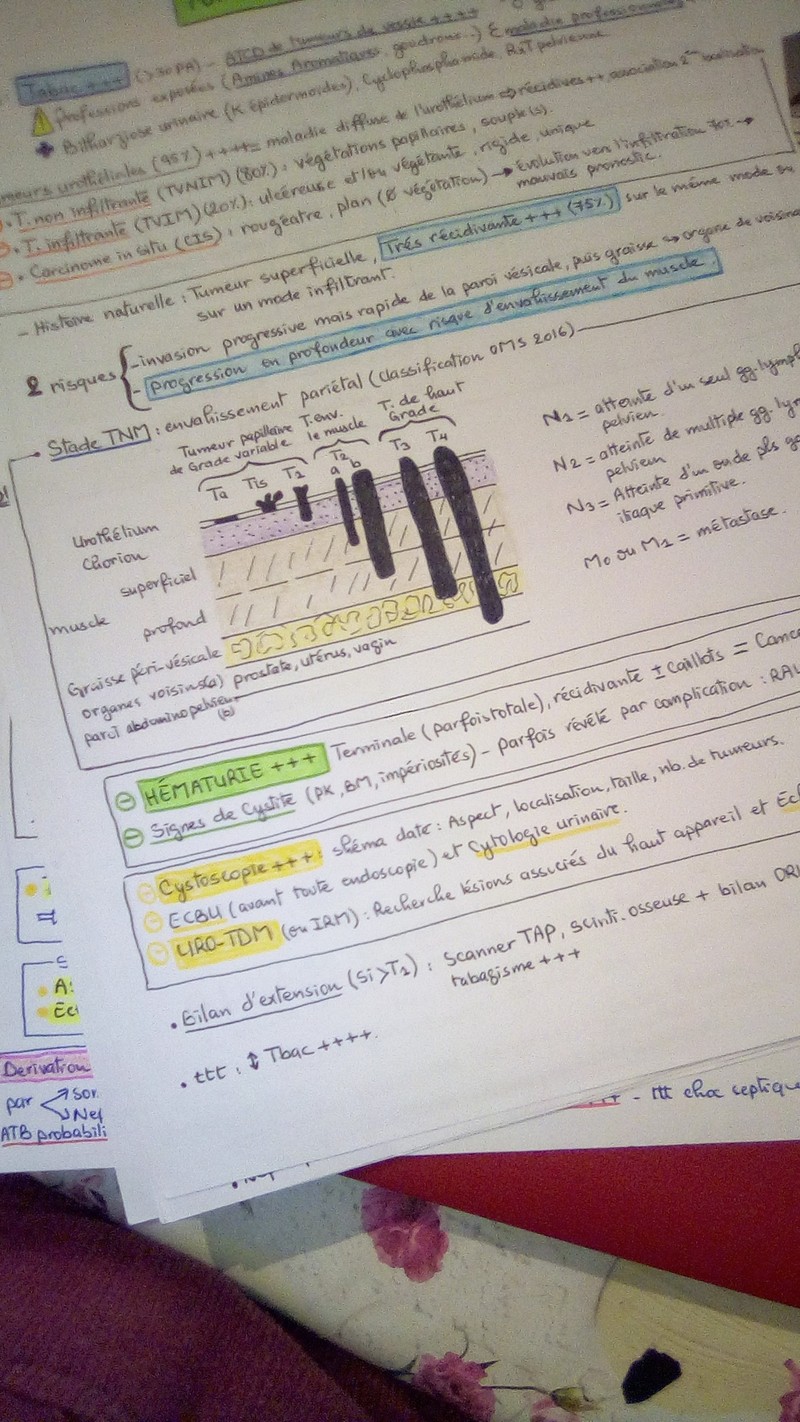 Tabac +++ (>30 PA) - ATCD de tumeurs de vessie ++++
Professions exposées (Amines Aromatiques, goudrons..) & maladie professionnelle
Bilharziose urinaire (K épidermoïdes), Cyclophosphamide, RxT pelvienne
meurs urothéliales (95%) ++++= maladie diffuse de l'urothélium => récidives ++, association 2ème localisation
• T. non infiltrante (TVNIM) (80%) : végétations papillaires, souple(s).
• T. infiltrante (TVIM) (20%) : ulcéreuse et/ou végétante, rigide, unique
• Carcinome in situ (CIS) : rougeâtre, plan (∅ végétation) → Évolution vers l'infiltration 70% →
mauvais pronostic.
- Histoire naturelle : Tumeur superficielle, Très récidivante +++ (75%) sur le même mode ou
sur un mode infiltrant.
2 risques { - invasion progressive mais rapide de la paroi vésicale, puis graisse → organe de voisina
- progression en profondeur avec risque d'envahissement du muscle.
Stade TNM : envahissement pariétal (classification OMS 2016)
Tumeur papillaire de Grade variable
T. env. le muscle
T. de haut Grade
Ta Tis T1 T2 a b T3 T4
Urothélium
Chorion
superficiel
muscle
profond
Graisse péri-vésicale
organes voisins(a) prostate, utérus, vagin
paroi abdominopelvien
(b)
N1 = atteinte d'un seul gg. lymph
pelvien.
N2 = atteinte de multiple gg. lym
pelvien
N3 = Atteinte d'un ou de pls gg
iliaque primitive.
M0 ou M1 = métastase.
⊖ HÉMATURIE +++ Terminale (parfois totale), récidivante ± Caillots =
⊖ Signes de Cystite (PK, BM, impériosités) - parfois révélé par complication :
⊖ Cystoscopie +++ : shéma daté : Aspect, localisation, taille, nb. de tumeurs.
⊖ ECBU (avant toute endoscopie) et Cytologie urinaire.
⊖ URO-TDM (ou IRM) : Recherche lésions associés du haut appareil et
• Bilan d'extension (si >T1) : Scanner TAP, scinti. osseuse + bilan ORL
tabagisme +++
• ttt : ↕ Tbac ++++.
Derivation
par
ATB probabili
- ttt choc septique